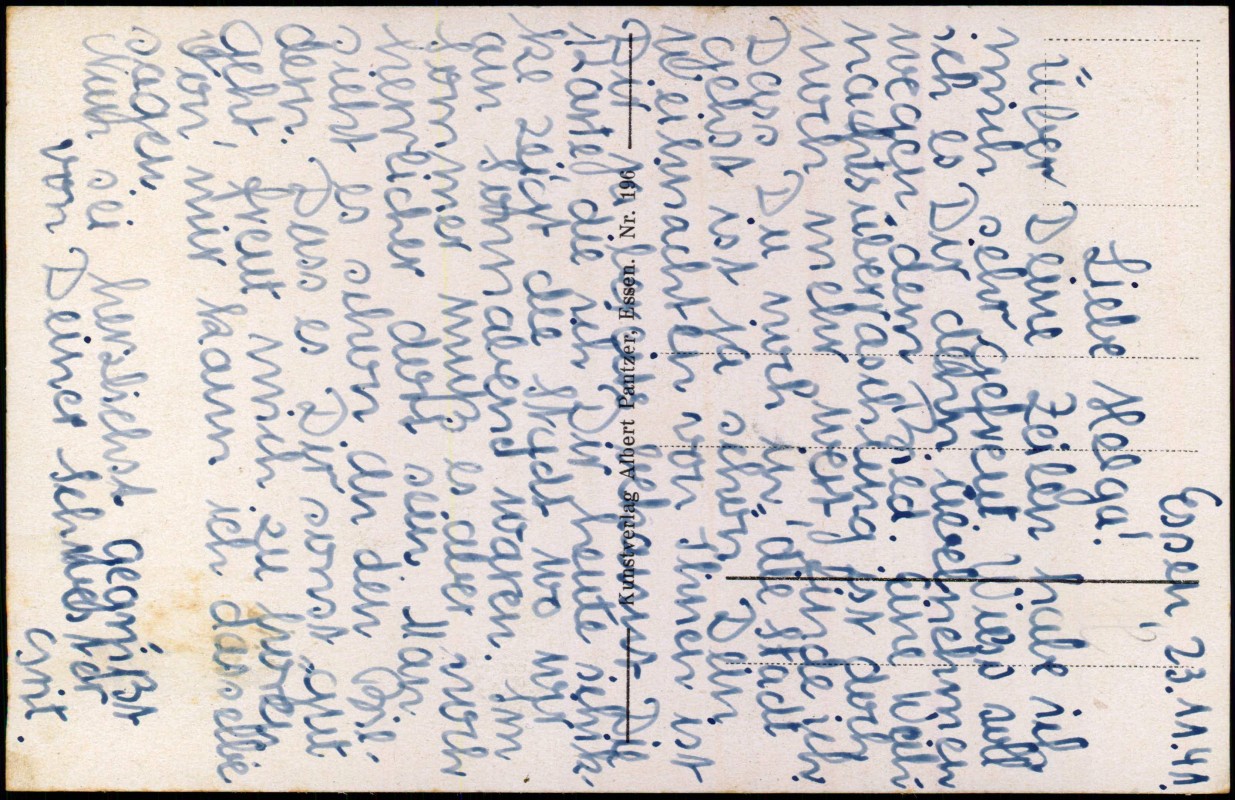 Essen, 23.11.41.
Liebe Helga!
Über Deine Zeilen habe ich
mich sehr gefreut. Wieso soll
ich es Dir denn übelnehmen
wegen dem Bild. Eine Weih-
nachtsüberraschung ist doch
noch mehr wert, finde ich.
Dass Du noch in die Stadt
gehst ist ja schön. Dein
Weihnachten von Ihnen ist
Die
Karte, die ich Dir heute schik-
ke zeigt die Stadt wo wir
am Sonnabend waren. Im
Sommer muß es aber noch
herrlicher dort sein. Man
sieht es schon an den Bil-
dern. Dass es Dir sonst gut
geht, freut mich zu hören.
Von mir kann ich dasselbe
sagen.
Nun sei herzlichst gegrüßt
von Deiner Schwester
Kunstverlag Albert Pantzer, Essen. Nr. 196